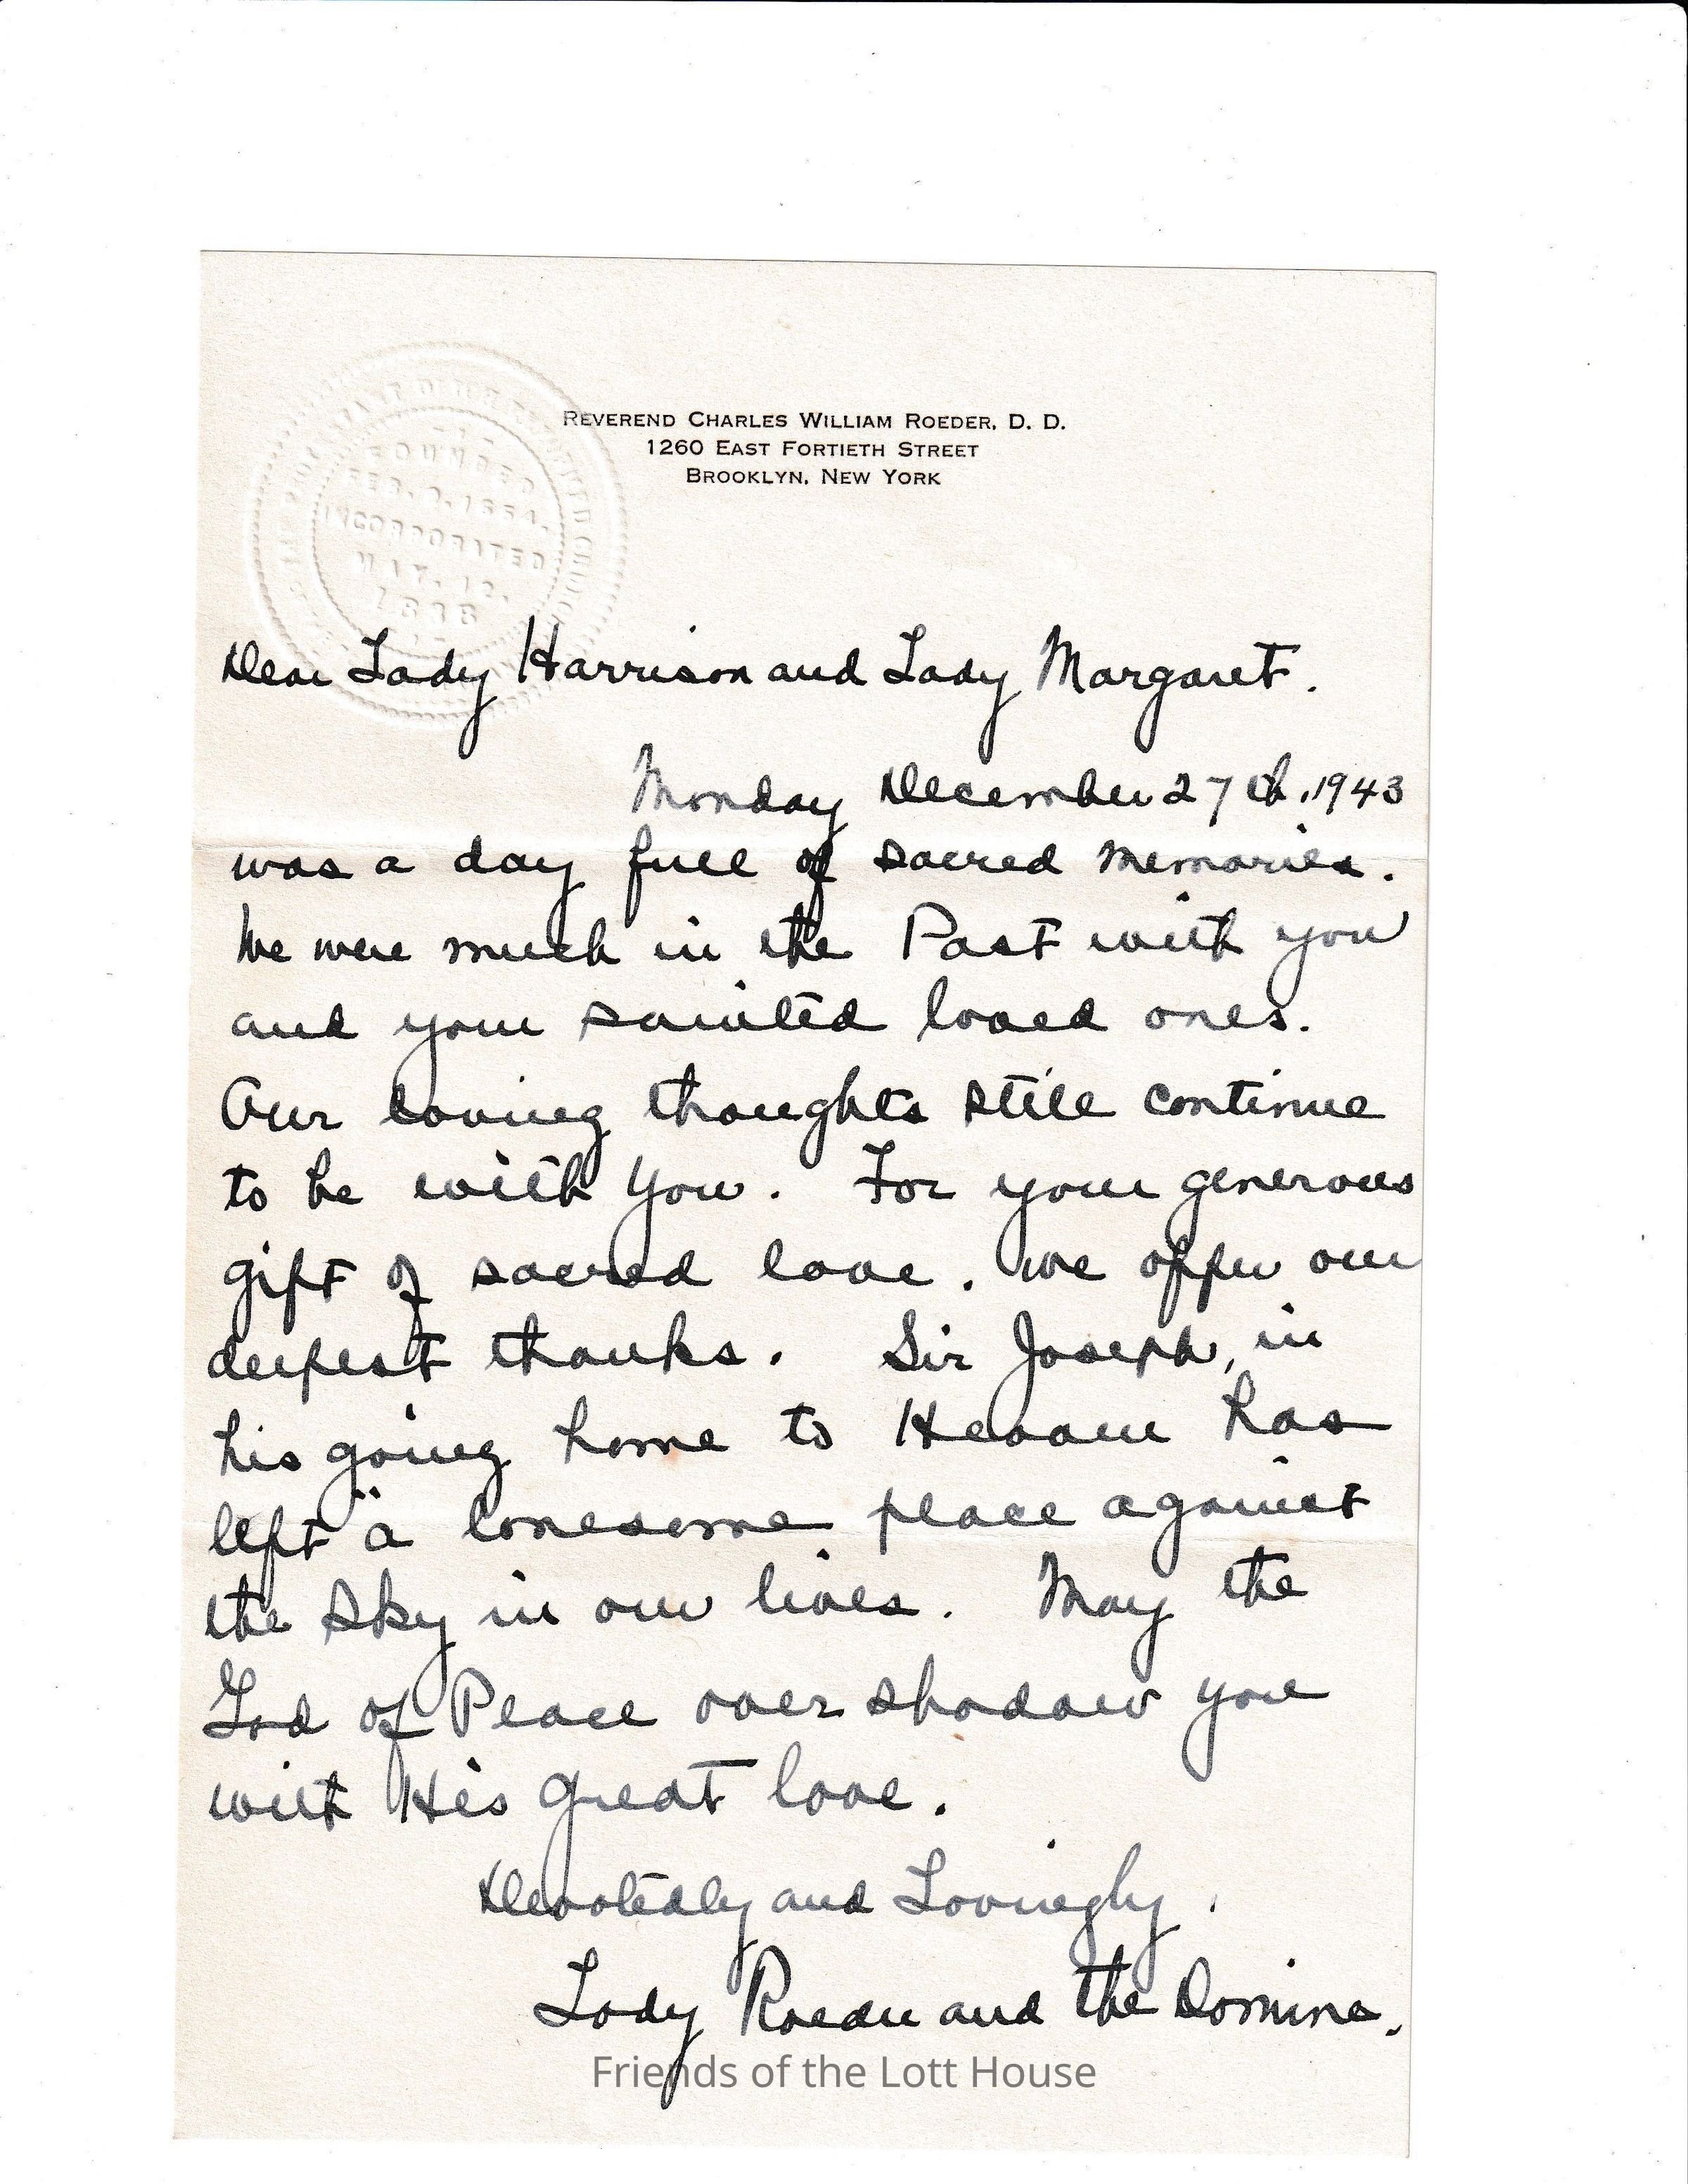 REVEREND CHARLES WILLIAM ROEDER, D. D.
1260 EAST FORTIETH STREET
BROOKLYN, NEW YORK
FOUNDED
FEB. 9, 1654.
INCORPORATED
MAY. 12.
1888
Dear Lady Harrison and Lady Margaret.
Monday December 27th, 1943
was a day full of sacred memories.
We were much in the Past with you
and your sainted loved ones.
Our loving thoughts still continue
to be with you. For your generous
gift of sacred love. we offer our
deepest thanks. Sir Joseph, in
his going home to Heaven has
left "a lonesome place against
the sky in our lives. May the
God of Peace over shadow you
with His great love.
Devotedly and Lovingly,
Lady Roeder and the Domine.
Friends of the Lott House